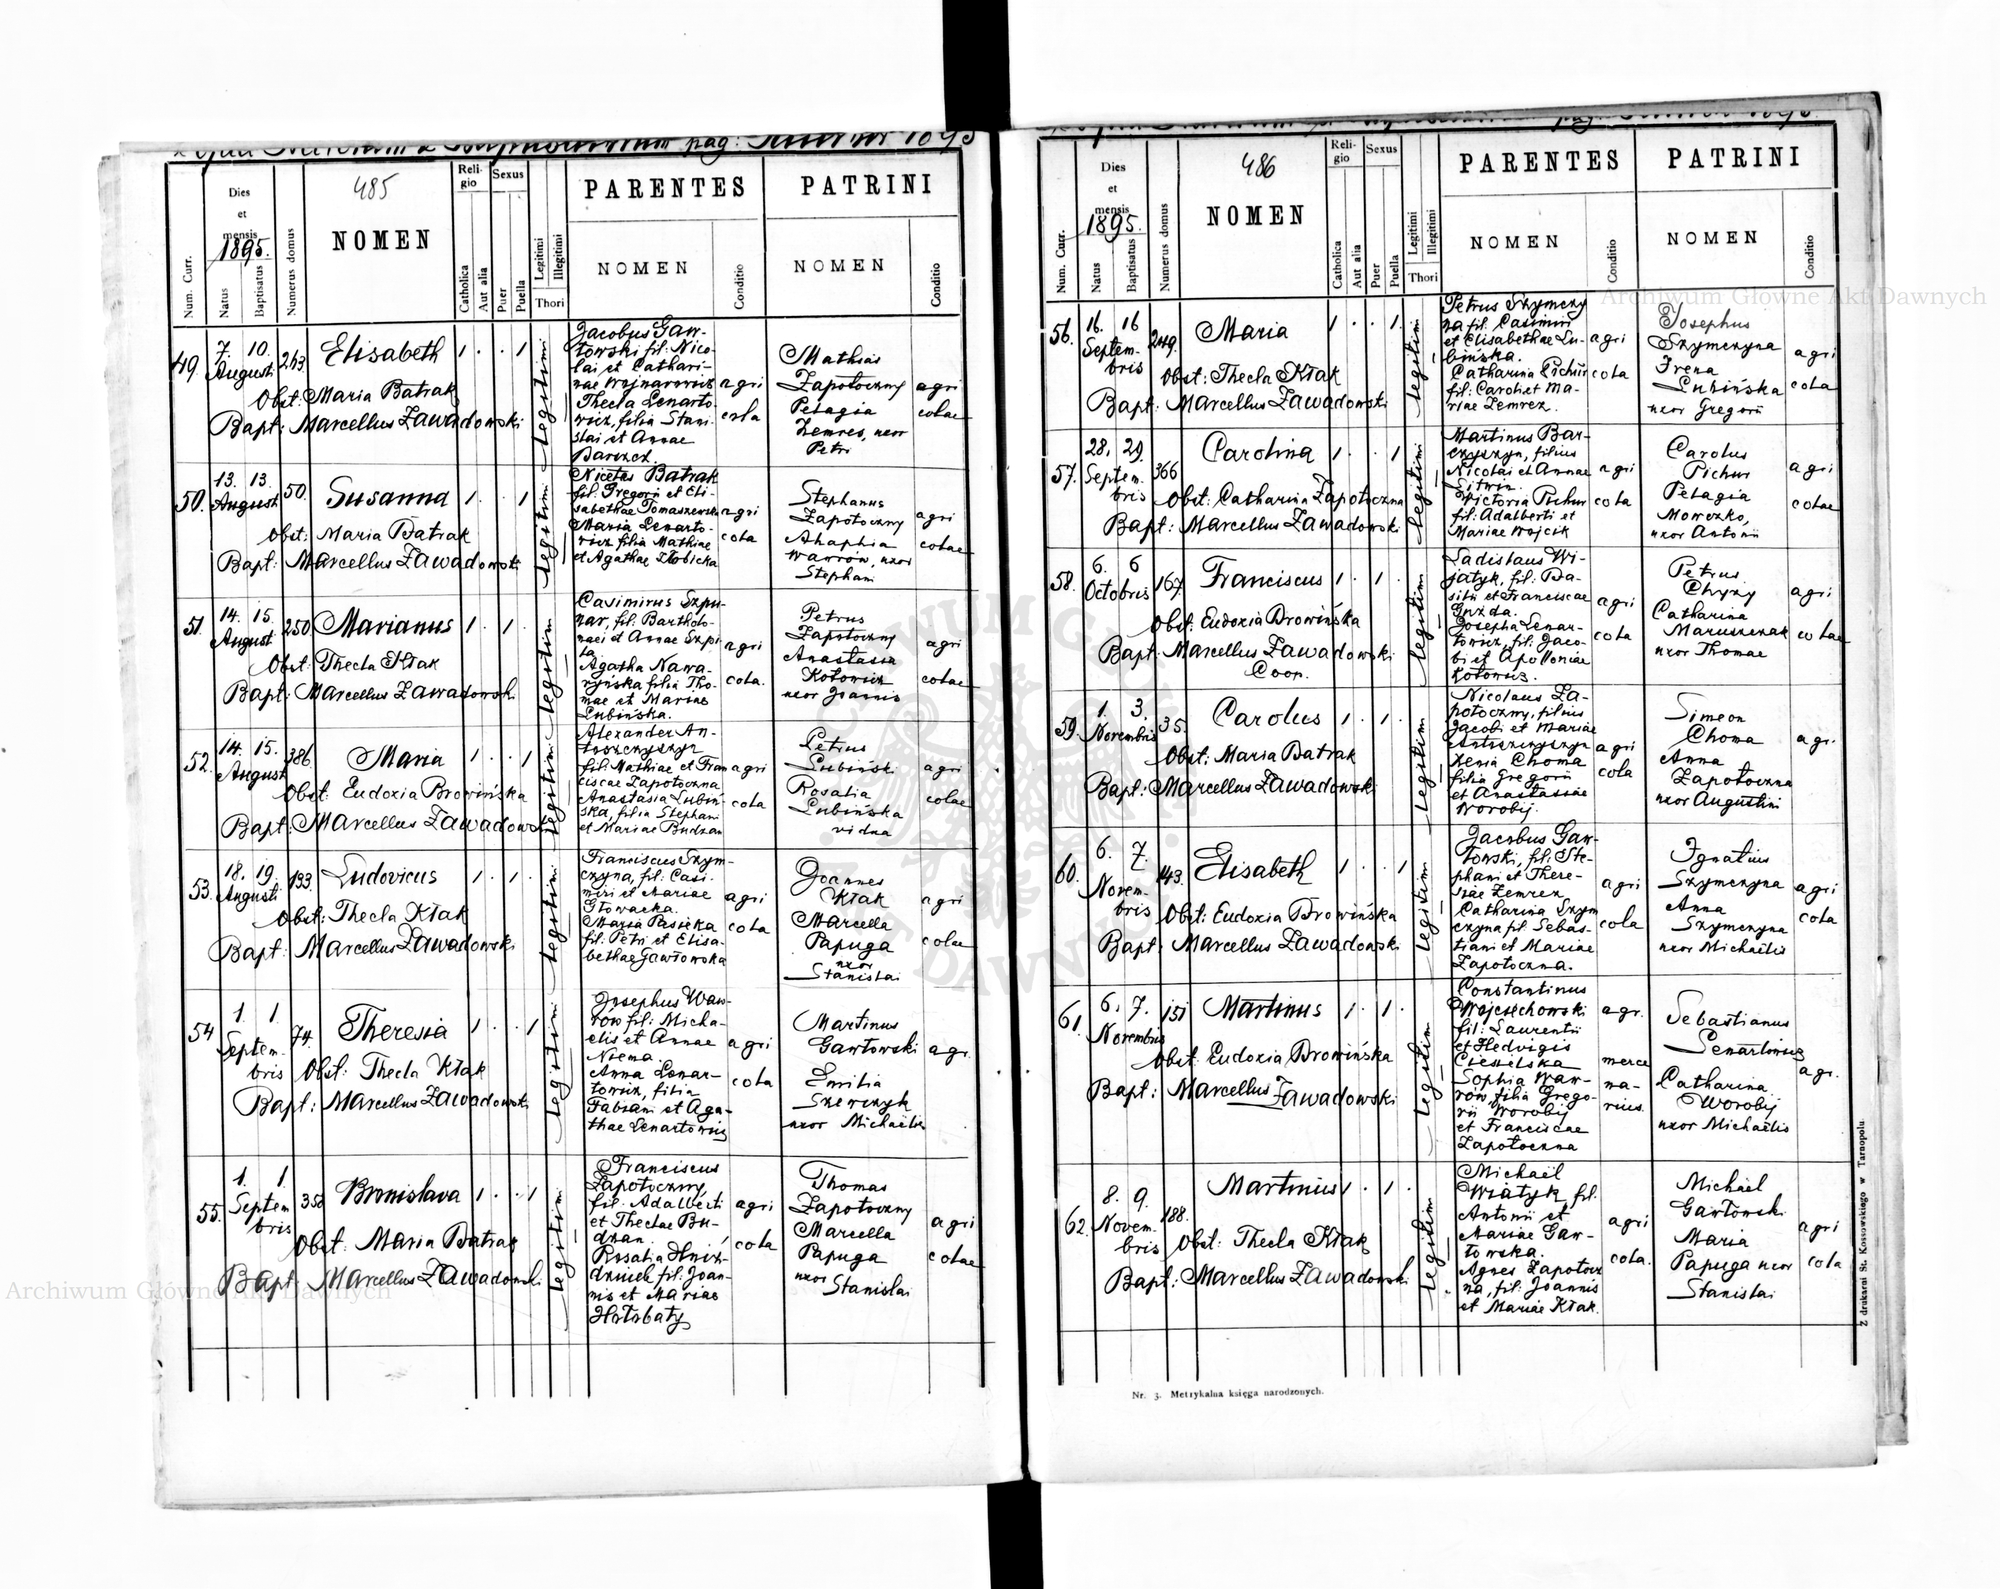 pag: 1895
Num. Curr.
Dies
et
mensis
1895.
Natus
Baptisatus
Numerus domus
485
NOMEN
Reli-
gio
Catholica
Aut alia
Sexus
Puer
Puella
Legitimi
Illegitimi
Thori
PARENTES
NOMEN
Conditio
PATRINI
NOMEN
Conditio
49.
7. 10.
Augusti
243.
Elisabeth
1 . . 1
Obst: Maria Batrak
Bapt: Marcellus Zawadowski
legitimi
Jacobus Gaw-
łowski fil: Nico-
lai et Cathari-
nae Wojnarowicz
Thecla Lenarto-
wicz, filia Stani-
slai et Annae
Barszcz.
agri
cola
Mathias
Zapotoczny
Pelagia
Zemres, uxor
Petri
agri
colae
50.
13. 13.
August
50.
Susanna
1 . . 1
Obst: Maria Batrak
Bapt: Marcellus Zawadowski
legitimi
Nicetas Batrak
fil: Gregorii et Eli-
sabethae Tomaszewska
Maria Lenarto-
wicz filia Mathiae
et Agathae Złobicka
agri
cola
Stephanus
Zapotoczny
Ahaphia
Wawrów, uxor
Stephani
agri
colae
51.
14. 15.
August
250.
Marianus
1 . 1 .
Obst: Thecla Kłak
Bapt: Marcellus Zawadowski
legitim
Casimirus Szpu-
nar, fil: Bartholo-
maei et Annae Szpi-
la
Agatha Nawa-
ryńska filia Tho-
mae et Mariae
Lubińska.
agri
cola.
Petrus
Zapotoczny
Anastasia
Kotowicz
uxor Joannis
agri
colae
52.
14. 15.
August
386.
Maria
1 . . 1
Obst: Eudoxia Browińska
Bapt: Marcellus Zawadowski
legitim
Alexander An-
toszczyszyn
fil: Mathiae et Fran
ciscae Zapotoczna
Anastasia Lubiń-
ska, filia Stephani
et Mariae Budzan
agri
cola
Petrus
Lubiński
Rosalia
Lubińska
vidua
agri
colae
53.
18. 19.
Augusti
133.
Ludovicus
1 . 1 .
Obst: Thecla Kłak
Bapt: Marcellus Zawadowski
legitimi
Franciscus Szym-
czyna, fil: Casi-
miri et Mariae
Głowacka.
Maria Pasieka
fil: Petri et Elisa-
bethae Gawłowska
agri
cola
Joannes
Kłak
Marcella
Papuga
uxor
Stanislai
agri
colae
54
1. 1
Septem-
bris
74.
Theresia
1 . . 1
Obst: Thecla Kłak
Bapt: Marcellus Zawadowski
legitimi
Josephus Waw-
rów fil: Micha-
elis et Annae
Niema.
Anna Lenar-
towicz, filia
Fabiani et Aga-
thae Lenartowicz
agri
cola
Martinus
Gawłowski
Emilia
Szewczyk
uxor Michaëlis
agr.
55.
1. 1.
Septem
bris
358
Bronislava
1 . . 1
Obst: Maria Batrak
Bapt: Marcellus Zawadowski
legitim
Franciscus
Zapotoczny,
fil: Adalberti
et Theclae Bu-
dzan.
Rosalia Hniz-
dziuch fil: Joan-
nis et Mariae
Hołobaty
agri
cola
Thomas
Zapotoczny
Marcella
Papuga
uxor
Stanislai
agri
colae
Num. Curr.
Dies
et
mensis
1895.
Natus
Baptisatus
Numerus domus
486
NOMEN
Reli-
gio
Catholica
Aut alia
Sexus
Puer
Puella
Legitimi
Illegitimi
Thori
PARENTES
NOMEN
Conditio
PATRINI
NOMEN
Conditio
56.
16. 16
Septem-
bris
249.
Maria
1 . . 1.
Obst: Thecla Kłak
Bapt: Marcellus Zawadowski
legitimi
Petrus Szymczy
na fil: Casimiri
et Elisabethae Lu-
bińska.
Catharina Pichur
fil: Caroli et Ma-
riae Zemrez.
agri
cola
Josephus
Szymczyna
Irena
Lubińska
uxor Gregorii
agri
cola
57.
28. 29.
Septem-
bris
366
Carolina
1 . . 1
Obst: Catharina Zapotoczna
Bapt: Marcellus Zawadowski
legitimi
Martinus Bar-
czyszyn, filius
Nicolai et Annae
Sitwin.
Victoria Pichur
fil: Adalberti et
Mariae Wojcik
agri
cola
Carolus
Pichur
Pelagia
Moroczko,
uxor Antonii
agri
colae
58.
6. 6
Octobris
167.
Franciscus
1 . 1 .
Obst: Eudoxia Browińska
Bapt: Marcellus Zawadowski
Coop.
legitim
Ladislaus Wi-
jatyk, fil: Ba-
silii et Franciscae
Gnzda.
Josepha Lenar-
towicz, fil: Jaco-
bi et Apolloniae
Kotowicz.
agri
cola
Petrus
Chyzy
Catharina
Maruszczak
uxor Thomae
agri
colae
59.
1. 3.
Novembris
35.
Carolus
1 . 1 .
Obst: Maria Batrak
Bapt: Marcellus Zawadowski
legitim
Nicolaus Za-
potoczny, filius
Jacobi et Mariae
Antoszczyszyn
Xenia Choma
filia Gregorii
et Anastasiae
Worobij.
agri
cola
Simeon
Choma
Anna
Zapotoczna
uxor Augustini
agr.
60.
6. 7.
Novem-
bris
143.
Elisabeth
1 . . 1
Obst: Eudoxia Browińska
Bapt: Marcellus Zawadowski
legitim
Jacobus Gaw-
łowski, fil: Ste-
phani et There-
siae Zemrez
Catharina Szym
czyna fil: Sebas-
tiani et Mariae
Zapotoczna.
agri
cola
Ignatius
Szymczyna
Anna
Szymczyna
uxor Michaëlis
agri
cola
61.
6. 7.
Novembris
151
Martinus
1 . 1 .
Obst: Eudoxia Browińska
Bapt: Marcellus Zawadowski
legitim
Constantinus
Wojciechowski
fil: Laurentii
et Hedvigis
Ciesielska
Sophia Waw-
rów, filia Grego-
rii Worobij
et Franciscae
Zapotoczna
agr.
merce
na-
rius.
Sebastianus
Lenartowicz
Catharina
Worobij
uxor Michaëlis
agr.
62.
8. 9.
Novem-
bris
188.
Martinus
1 . 1 .
Obst: Thecla Kłak
Bapt: Marcellus Zawadowski
legitim
Michaël
Wiatyk fil.
Antonii et
Mariae Gaw-
łowska.
Agnes Zapotocz
na, fil: Joannis
et Mariae Kłak.
agri
cola.
Michaël
Gawłowski
Maria
Papuga uxor
Stanislai
agri
cola
Nr. 3. Metrykalna księga narodzonych.
Z drukarni St. Kossowskiego w Tarnopolu.
Archiwum Główne Akt Dawnych
Archiwum Główne Akt Dawnych